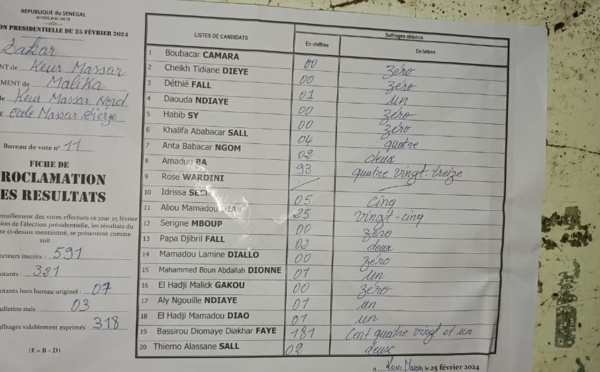 REPUBLIQUE DU SENEGAL
ON PRESIDENTIELLE DU 25 FÉVRIER 2024
Dakar
NT de Keur Massar
MENT de Malika
e Keur Massar Nord
Ecole Massar
Bureau de vote n° 11
FICHE DE
ROCLAMATION
ES RESULTATS
ouillement des votes effectués ce jour 25 février
sion de l'élection présidentielle, les résultats du
te ci-dessus mentionné, se présentent comme
suit :
ecteurs inscrits : 591
otants : 321
otants hors bureau originel : 07
ulletins nuls : 03
uffrages valablement exprimés : 318
(E – B – D)
LISTES DE CANDIDATS
Suffrages obtenus
En chiffres
En lettres
1 Boubacar CAMARA 00 zéro
2 Cheikh Tidiane DIEYE 00 zéro
3 Déthié FALL 01 un
4 Daouda NDIAYE 00 zéro
5 Habib SY 00 zéro
6 Khalifa Ababacar SALL 04 quatre
7 Anta Babacar NGOM 02 deux
8 Amadou BA 93 quatre vingt-treize
9 Rose WARDINI
10 Idrissa SECK 05 Cinq
11 Aliou Mamadou DIA 25 vingt-cinq
12 Serigne MBOUP 00 zéro
13 Papa Djibril FALL 02 deux
14 Mamadou Lamine DIALLO 00 zéro
15 Mahammed Boun Abdallah DIONNE 01 un
16 El Hadji Malick GAKOU 00 zéro
17 Aly Ngouille NDIAYE 01 un
18 El Hadji Mamadou DIAO 01 un
19 Bassirou Diomaye Diakhar FAYE 181 Cent quatre vingt et un
20 Thierno Alassane SALL 02 deux
A Keur Massar le 25 février 2024